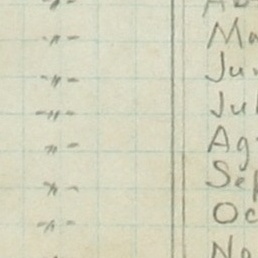 -〃- Ab
-〃- Ma
-〃- Jun
-〃- Jul
〃- Ag
〃- Sep
-〃- Oc
〃 No